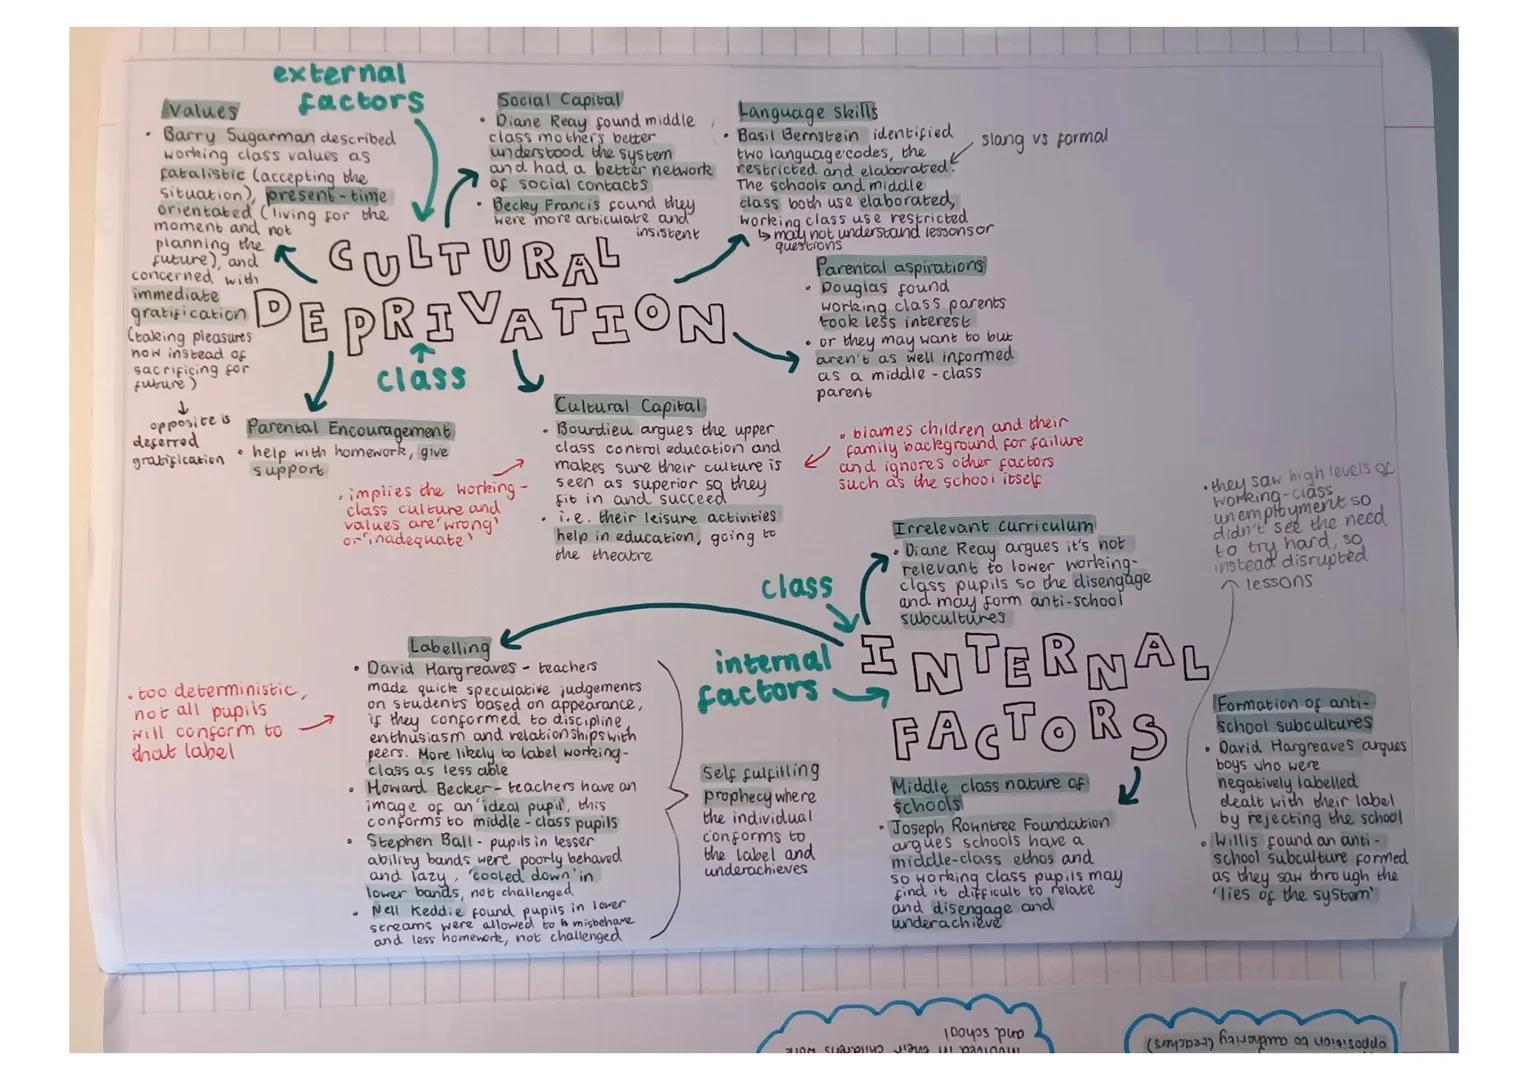 external
factors
Values
• Barry Sugarman described
working class values as
fatalistic (accepting the
situation), present-time
orientated (living for the
moment and not
planning the
future), and
concerned with
immediate
gratification
(taking pleasures
now instead of
sacrificing for
future)
↓
opposite is
deferred
gratification
Social Capital
• Diane Reay found middle
class mothers better
understood the system
and had a better network
of social contacts
• Becky Francis found they
were more articulate and
insistent
Language skills
• Basil Bernstein identified
two language codes, the
restricted and elaborated.
The schools and middle
class both use elaborated,
working class use restricted
↳ may not understand lessons or
questions
slang vs formal
CULTURAL
DEPRIVATION
class
Parental aspirations
• Douglas found
working class parents
took less interest
• or they may want to but
aren't as well informed
as a middle-class
parent
Parental Encouragement
• help with homework, give
support
• implies the working-
class culture and
values are 'wrong'
or 'inadequate'
Cultural Capital
• Bourdieu argues the upper
class control education and
makes sure their culture is
seen as superior so they
fit in and succeed
• i.e. their leisure activities
help in education, going to
the theatre
• blames children and their
family background for failure
and ignores other factors
such as the school itself
class
internal
factors
INTERNAL
FACTORS
Irrelevant curriculum
• Diane Reay argues it's not
relevant to lower working-
class pupils so the disengage
and may form anti-school
subcultures
• they saw high levels of
working-class
unemployment so
didn't see the need
to try hard, so
instead disrupted
lessons
Labelling
• David Hargreaves - teachers
made quick speculative judgements
on students based on appearance,
if they conformed to discipline,
enthusiasm and relationships with
peers. More likely to label working-
class as less able
• Howard Becker - teachers have an
image of an 'ideal pupil', this
conforms to middle-class pupils
• Stephen Ball - pupils in lesser
ability bands were poorly behaved
and lazy, 'cooled down' in
lower bands, not challenged
• Nell Keddie found pupils in lower
streams were allowed to misbehave
and less homework, not challenged
• too deterministic,
not all pupils
will conform to
that label
Self fulfilling
prophecy where
the individual
conforms to
the label and
underachieves
Middle class nature of
schools
• Joseph Rowntree Foundation
argues schools have a
middle-class ethos and
so working class pupils may
find it difficult to relate
and disengage and
underachieve
Formation of anti-
school subcultures
• David Hargreaves argues
boys who were
negatively labelled
dealt with their label
by rejecting the school
• Willis found an anti-
school subculture formed
as they saw through the
'lies of the system'
and school
involved in their childrens work
opposition to authority (teachers)